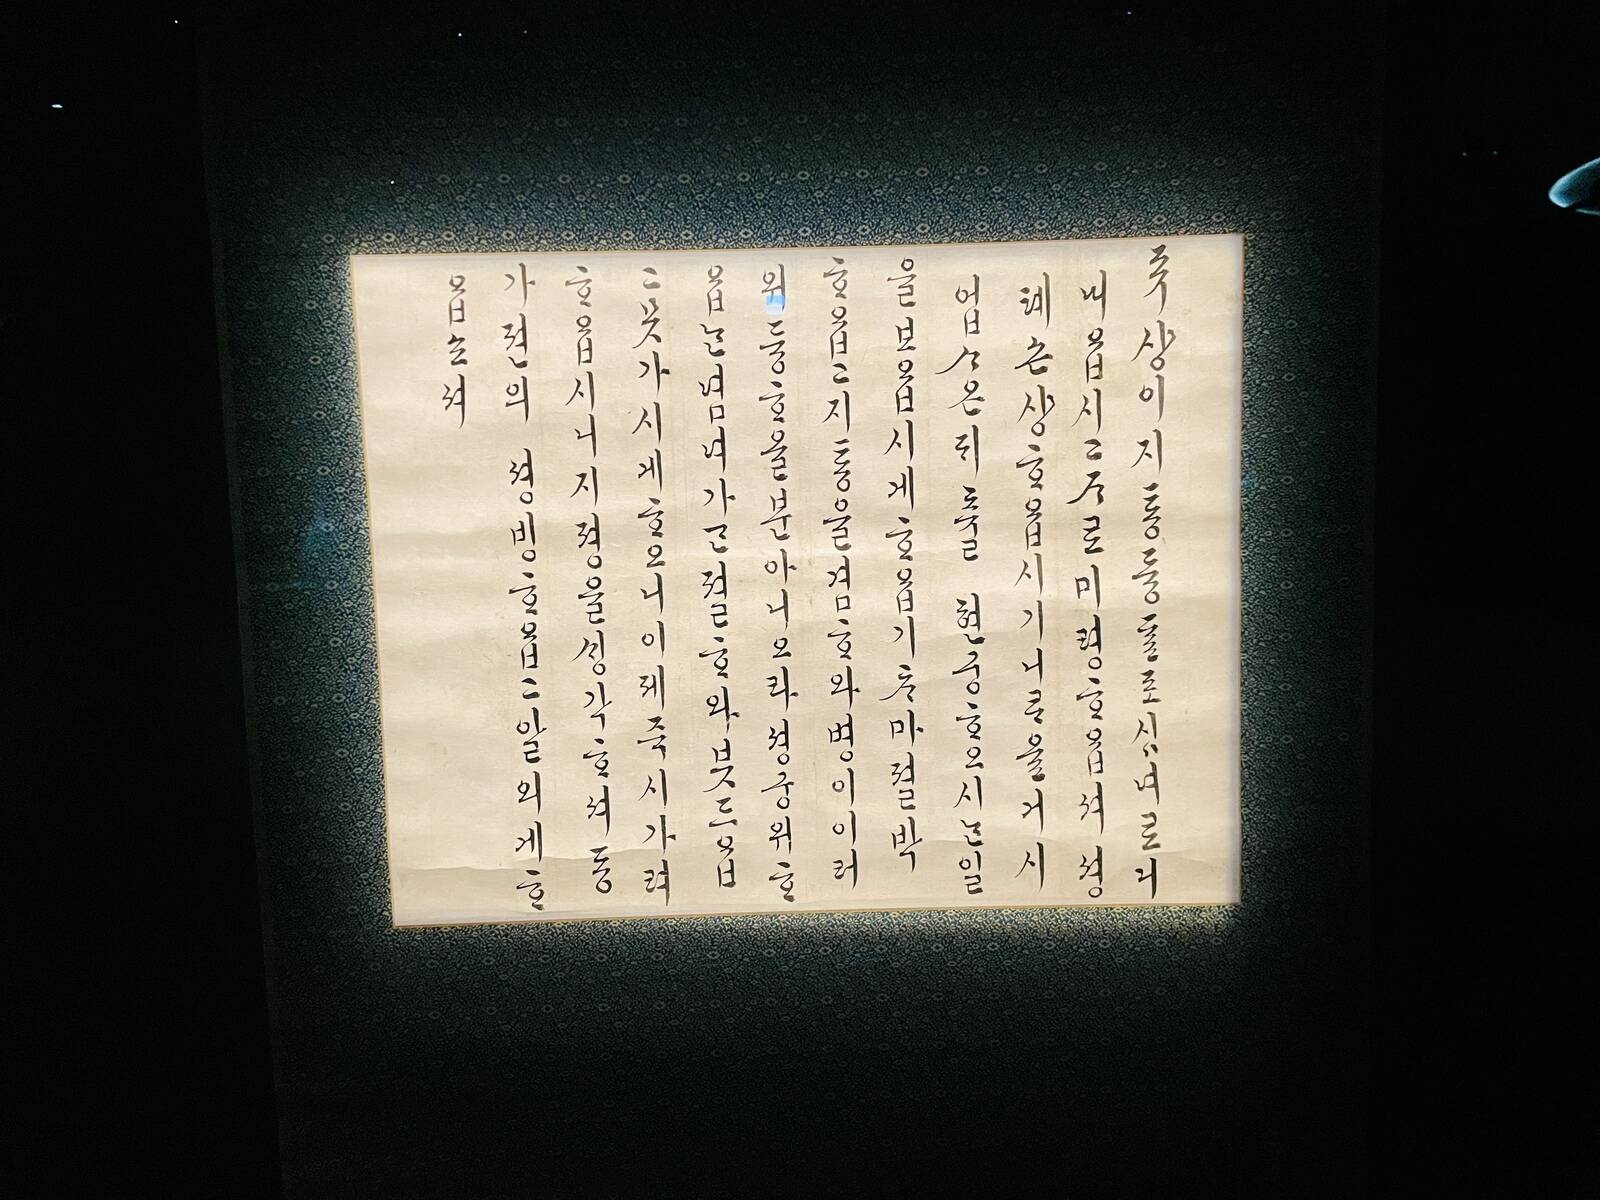 쥭상이지통듕 녀로디
내옵시고ᄌᆞ로미령ᄒᆞ옵셔셩
톄손상ᄒᆞ옵시기니ᄅᆞ올거시
업ᄉᆞ온ᄃᆡ 현궁ᄒᆞ오시ᄂᆞᆫ일
을보옵시게ᄒᆞ옵기ᄎᆞ마졀박
ᄒᆞ옵고지통을겸ᄒᆞ와병이이러
위듕ᄒᆞ올분아니오라셩궁위ᄒᆞ
옵ᄂᆞᆫ념녀가근졀ᄒᆞ와븟드옵
고못가시게ᄒᆞ오니이제즉시가려
ᄒᆞ옵시니지졍을ᄉᆡᆼ각ᄒᆞ셔동
가젼의 셩빙ᄒᆞ옵고알외게ᄒᆞ
옵쇼셔